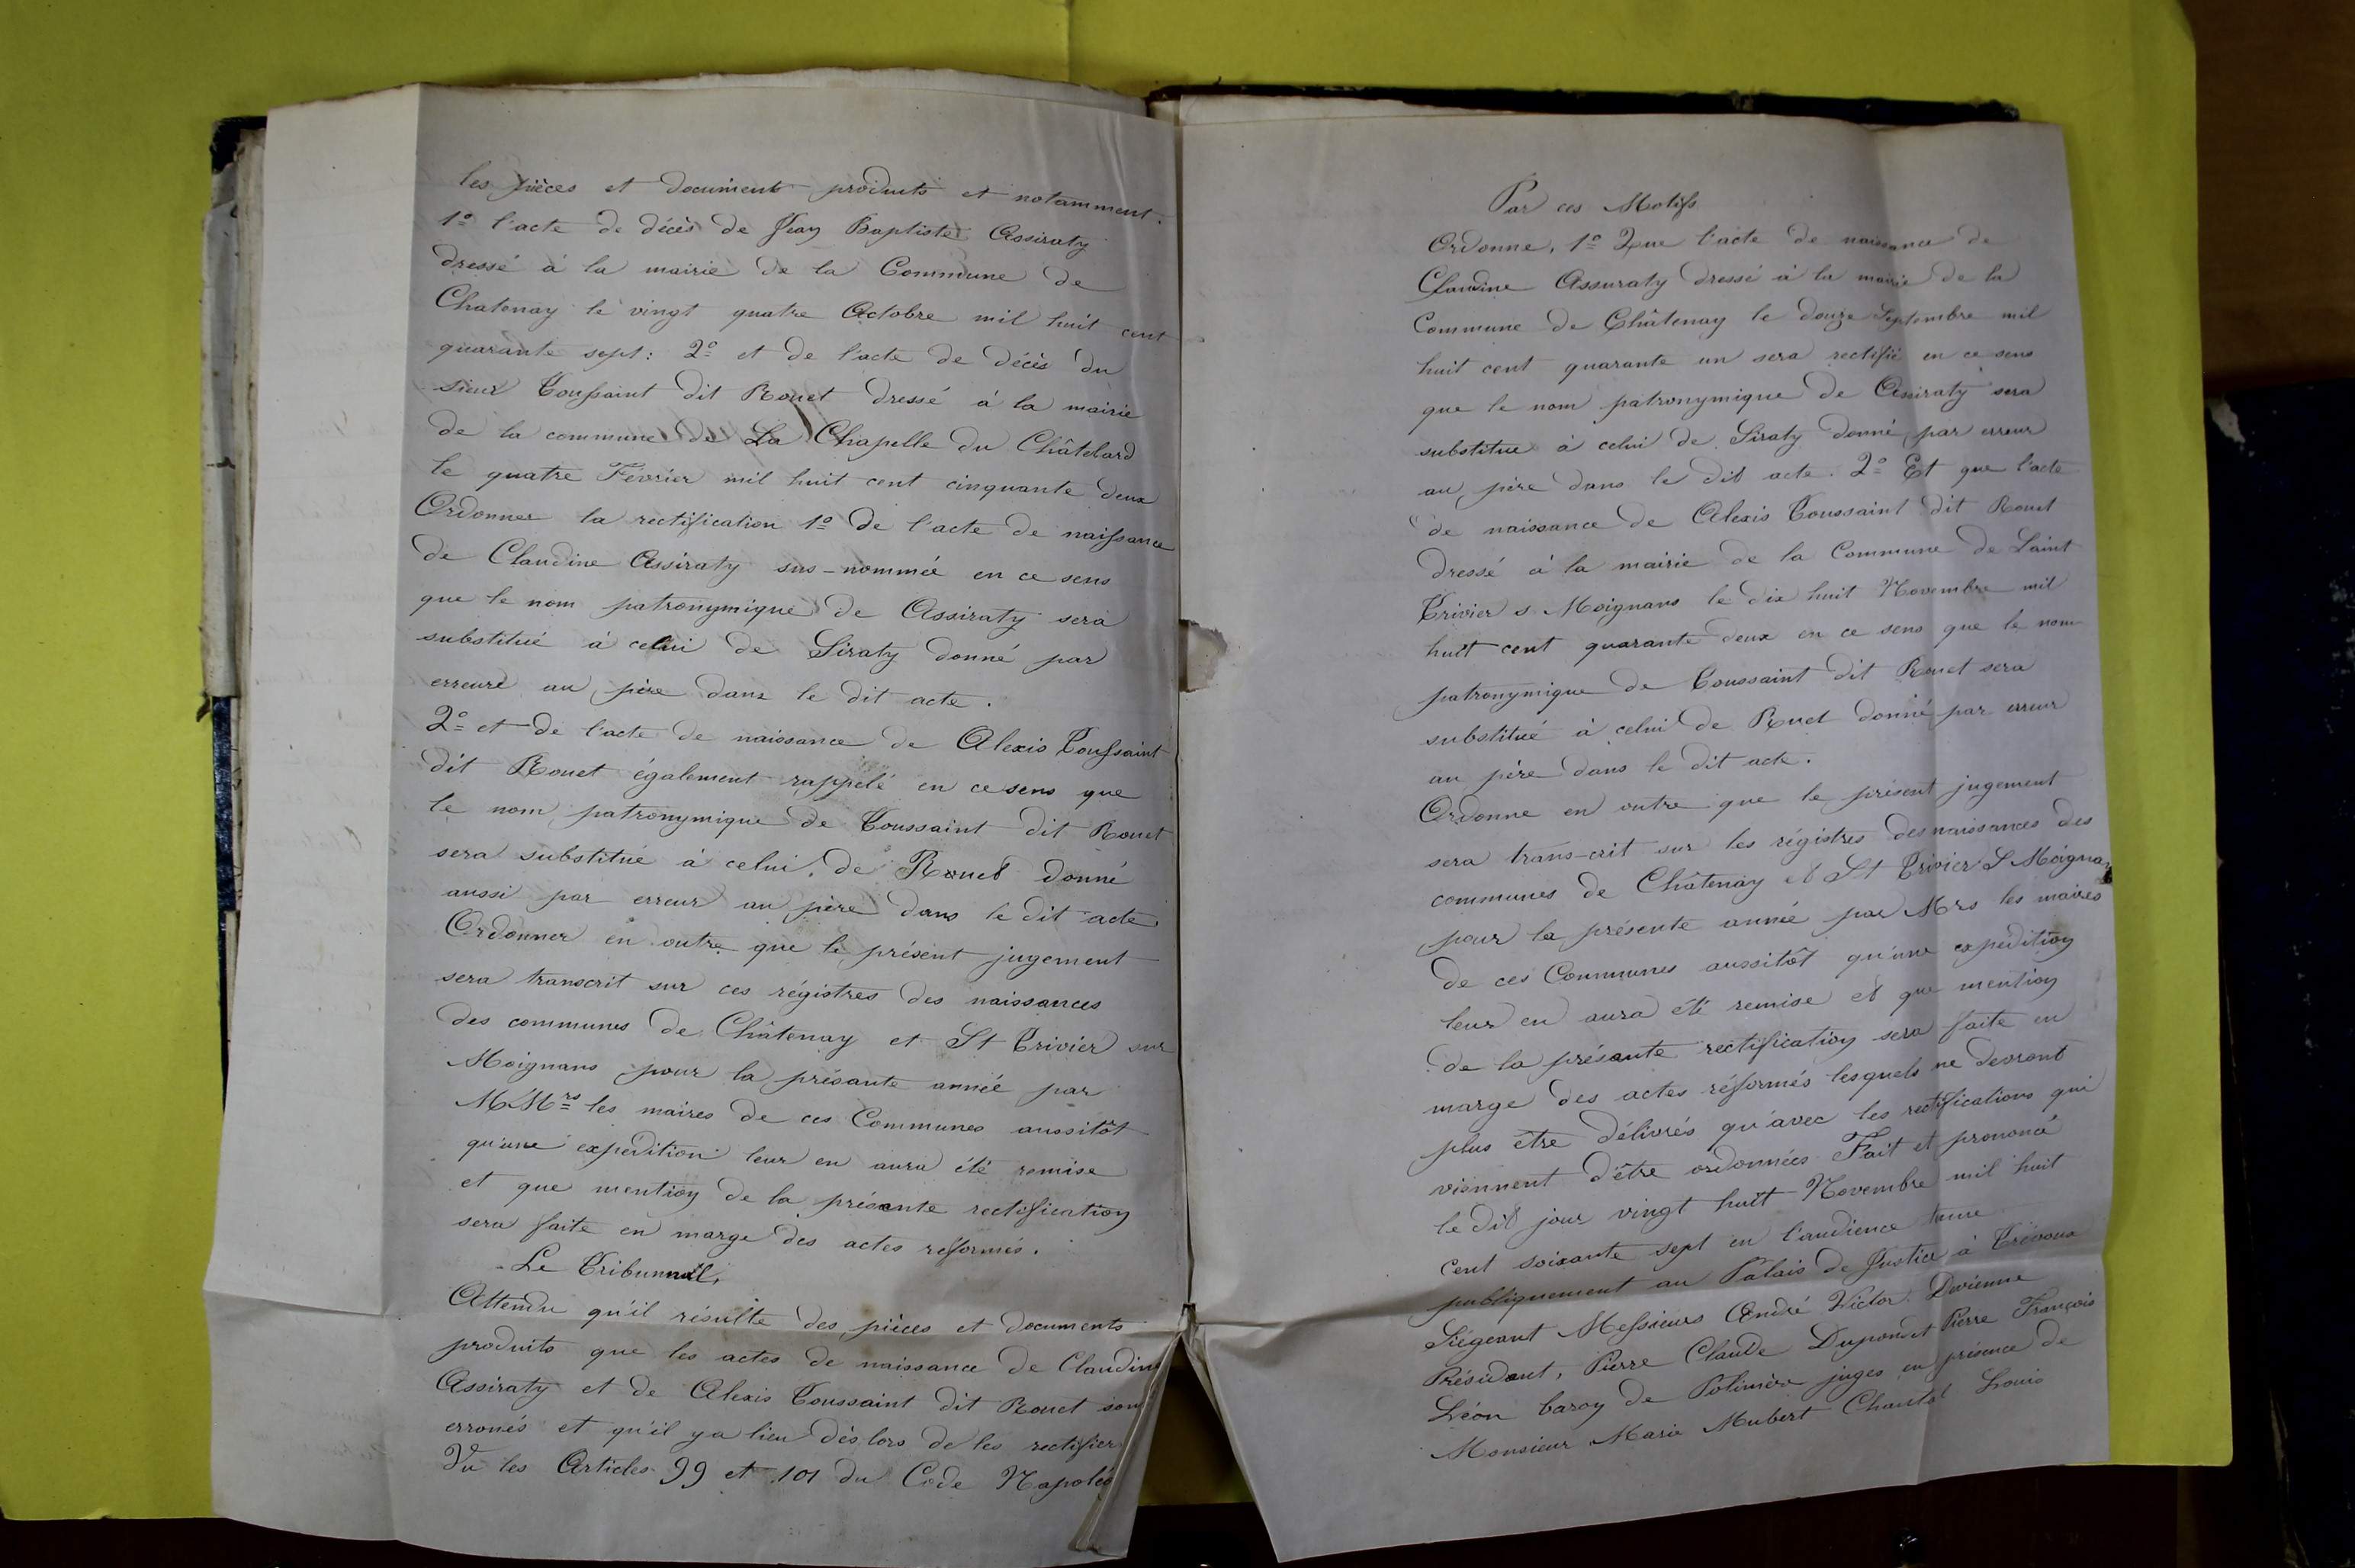 les pièces et documents produits et notamment.
1º l'acte de décès de Jean Baptiste Assiraty
dressé à la mairie de la Commune de
Chatenay le vingt quatre Octobre mil huit cent
quarante sept : 2º et de l'acte de décès du
sieur Toussaint dit Rouet dressé à la mairie
de la commune de La Chapelle du Châtelard
le quatre Février mil huit cent cinquante deux
Ordonner la rectification 1º de l'acte de naissance
de Claudine Assiraty sus-nommée en ce sens
que le nom patronymique de Assiraty sera
substitué à celui de Siraty donné par
erreur au père dans le dit acte.
2º et de l'acte de naissance de Alexis Toussaint
dit Rouet également rappelé en ce sens que
le nom patronymique de Toussaint dit Rouet
sera substitué à celui de Rouet donné
aussi par erreur au père dans le dit acte
Ordonner en outre que le présent jugement
sera transcrit sur ces régistres des naissances
des communes de Châtenay et St Trivier sur
Moignans pour la présante année par
MMrs les maires de ces Communes aussitôt
qu'une expédition leur en aura été remise
et que mention de la présente rectification
sera faite en marge des actes reformés.
Le Tribunal,
Attendu qu'il résulte des pièces et documents
produits que les actes de naissance de Claudine
Assiraty et de Alexis Toussaint dit Rouet sont
erronés et qu'il y a lieu dès lors de les rectifier
Vu les Articles 99 et 101 du Code Napoléo
Par ces Motifs
Ordonne, 1º Que l'acte de naissance de
Claudine Assuraty dressé à la mairie de la
Commune de Châtenay le douze Septembre mil
huit cent quarante un sera rectifié en ce sens
que le nom patronymique de Assiraty sera
substitue à celui de Siraty donné par erreur
au père dans le dit acte. 2º Et que l'acte
de naissance de Alexis Toussaint dit Rouet
dressé à la mairie de la Commune de Saint
Trivier s. Moignans le dix huit Novembre mil
huit cent quarante deux en ce sens que le nom
patronymique de Toussaint dit Rouet sera
substitué à celui de Ruet donné par erreur
au père dans le dit acte.
Ordonne en outre que le présent jugement
sera trans-crit sur les régistres des naissances des
communes de Châtenay et St Trivier S Moignans
pour la présente année par Mrs les maires
de ces Communes aussitôt qu'une expédition
leur en aura été remise et que mention
de la présante rectification sera faite en
marge des actes réformés lesquels ne devront
plus être délivrés qu'avec les rectifications qui
viennent d'être ordonnées. Fait et prononcé
le dit jour vingt huit Novembre mil huit
cent soixante sept en l'audience tenue
publiquement au Palais de Justice à Trévoux
Siégeant Messieurs André Victor Devienne
Président, Pierre Claude Dupond et Pierre François
Léon baron de Polinière juges en présence de
Monsieur Marie Hubert Chantal Louis